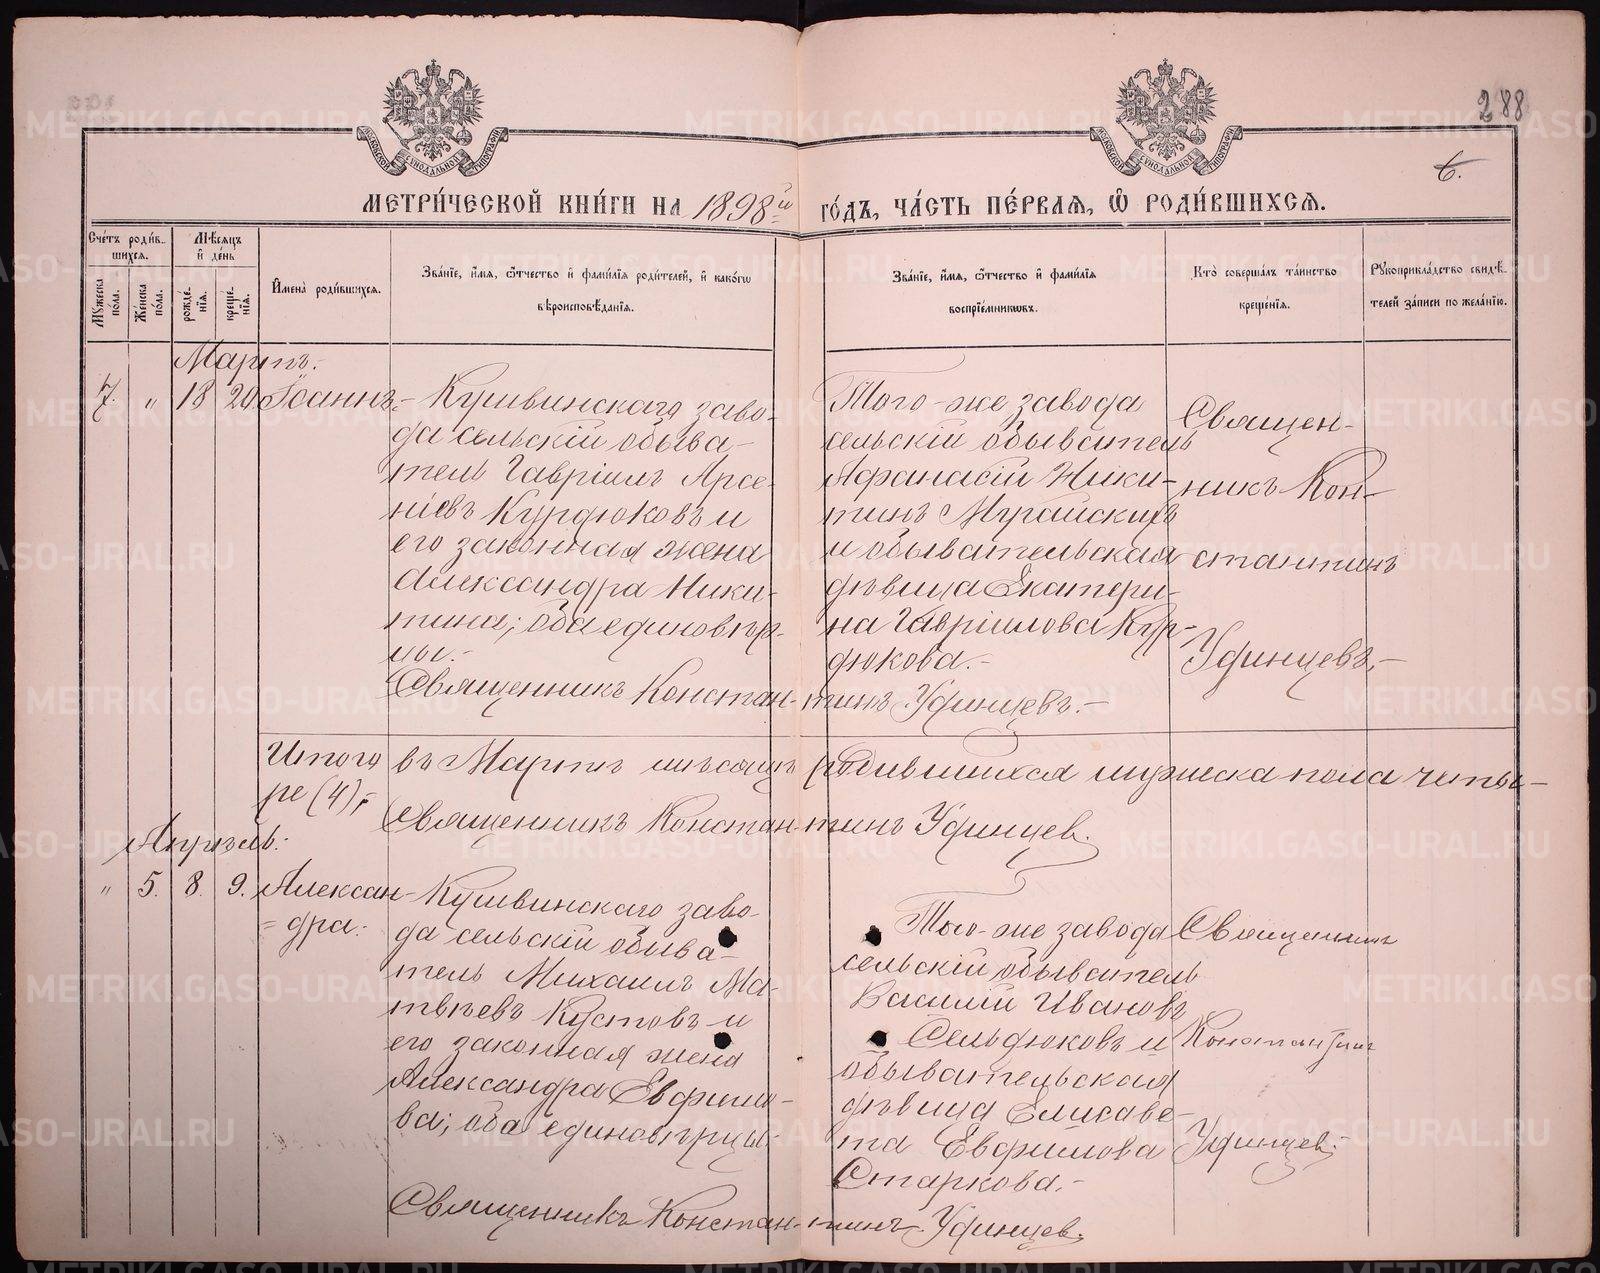 288
6.
МЕТРИ́ЧЕСКОЙ КНИ́ГИ НА 1898й ГО́ДЪ, ЧА́СТЬ ПЕ́РВАѦ, Ѡ҆ РОДИ́ВШИХСѦ.
Сче́тъ роди́в-
шихсѧ.
Мꙋ́жеска
по́ла.
Же́нска
по́ла.
Мѣ́сѧцъ
и҆ де́нь
рожде́-
нїѧ.
креще́-
нїѧ.
И҆мена̀ роди́вшихсѧ.
Зва́нїе, и҆́мѧ, ѻ҆́тчество и҆ фами́лїѧ роди́телей, и҆ како́гѡ
вѣроисповѣ́данїѧ.
Зва́нїе, и҆́мѧ, ѻ҆́тчество и҆ фами́лїѧ
воспрїе́мникѡвъ.
Кто̀ соверша́лъ та́инство
креще́нїѧ.
Рꙋкоприкла́дство свидѣ́-
телей за́писи по жела́нїю.
Мартъ.
7. " 18 20. Іоаннъ.
Кушвинскаго заво-
да сельскій обыва-
тель Гавріилъ Арсе-
ніевъ Курдюковъ и
его законная жена
Александра Ники-
тина; оба единовѣр-
цы.-
Того-же завода
сельскій обыватель
Афанасій Ники-
тинъ Мурайскихъ
и обывательская
дѣвица Екатери-
на Гавріилова Кур-
дюкова.-
Священ-
никъ Кон-
стантинъ
Удинцевъ.-
Священникъ Константинъ Удинцевъ.-
Итого въ Мартѣ мѣсяцѣ родившихся мужеска пола четы-
ре (4).-
Священникъ Константинъ Удинцев.
Апрѣль.
" 5. 8. 9. Алексан-
=дра.-
Кушвинскаго заво-
да сельскій обыва-
тель Михаилъ Ма-
твѣевъ Кустовъ и
его законная жена
Александра Евфимо-
ва; оба единовѣрцы.
Того-же завода
сельскій обыватель
Василій Ивановъ
Сельдюковъ и
обывательская
дѣвица Елисаве-
та Евфимова
Старкова.-
Священникъ
Константинъ
Удинцев.-
Священникъ Константинъ Удинцев.
METRIKI.GASO-URAL.RU